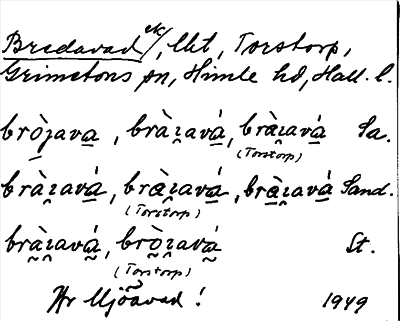 Bredavad ek/, lht, Torstorp,
Grimetons sn, Himle hd, Hall. l.
brò̱ȷava̱, bràı̯avá, bræ̀ı̯avá̱ Sa.
(Torstorp)
bràı̯avá̱, bræ̀ı̯avá̱, bræ̱̀ı̯avá̱ Sand.
(Torstorp)
brà̰ı̯avá̰, brò̰ı̯avá̰ St.
(Torstorp)
Jfr Mjöavad!
1949